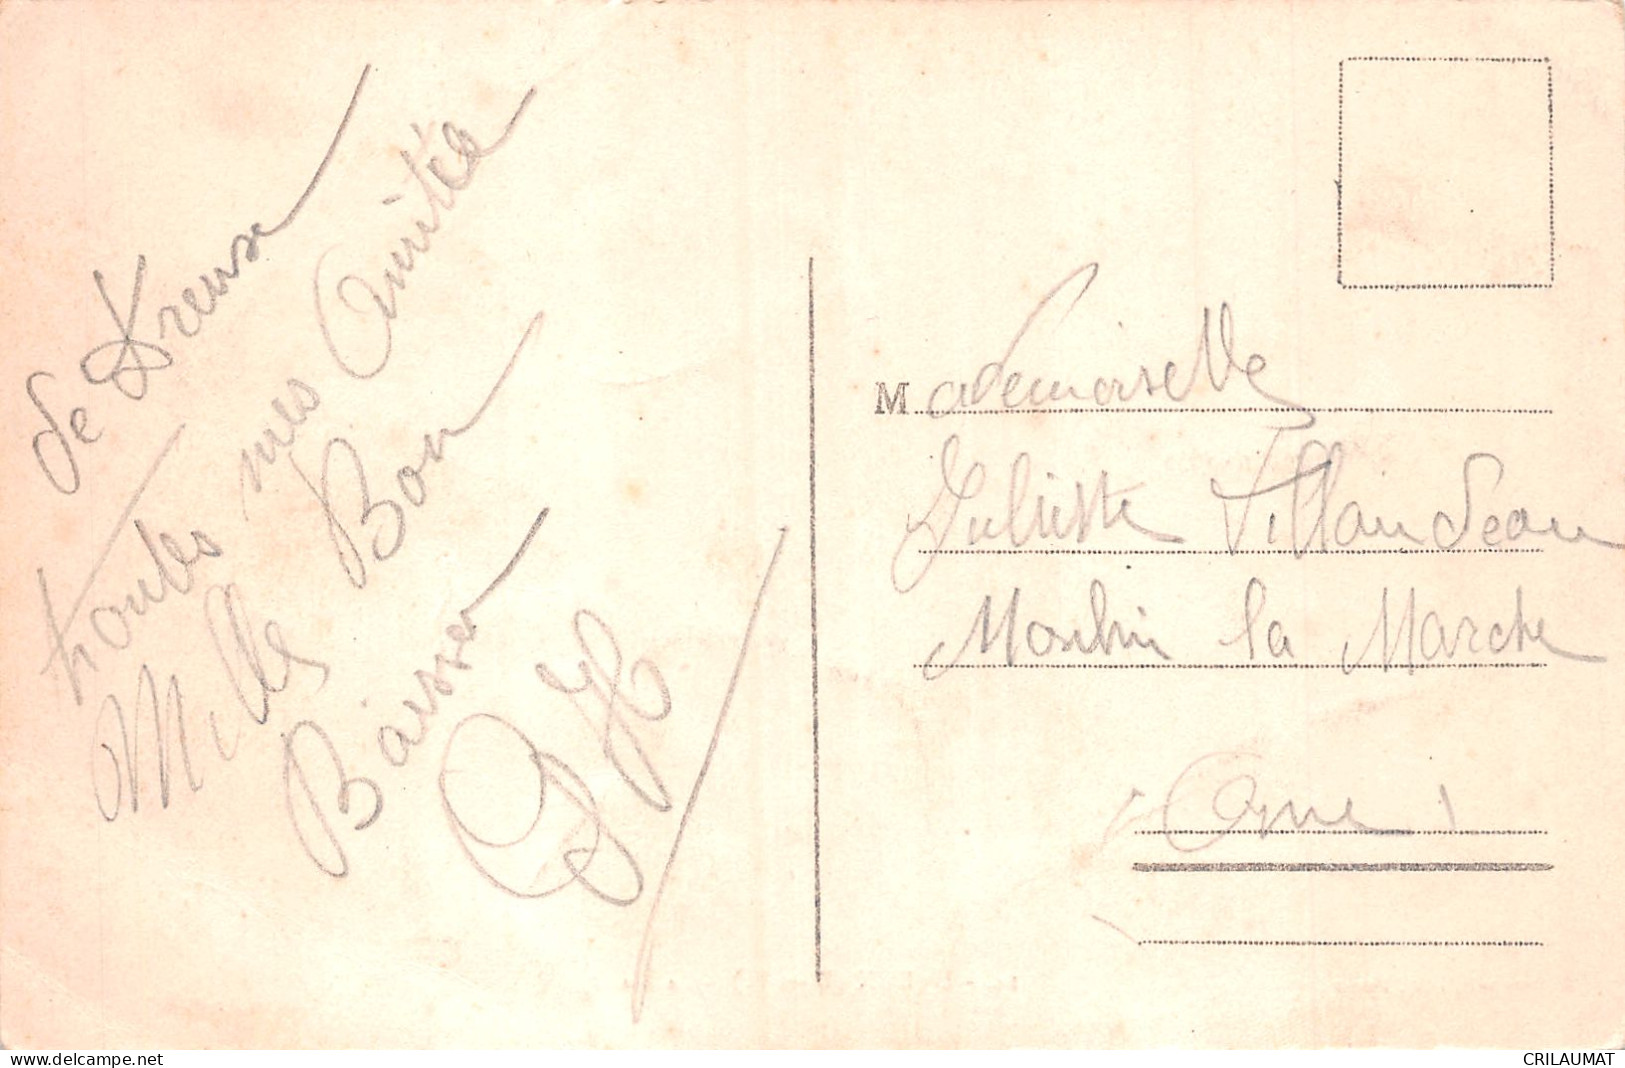 de Dreuse
toutes mes Amitiés
Mille Bon
Baiser
Mademoiselle
Juliette Villaudeau
Moulin la Marche
(Orne)
delcampe.net
CRILAUMAT